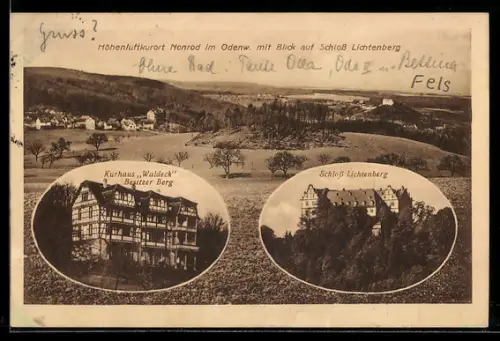 Gruss?
Höhenluftkurort Nonrod im Odenw. mit Blick auf Schloß Lichtenberg
Ohne Bad Tante Otta, Otto u. Bettina
Fels
Kurhaus „Waldeck"
Besitzer Berg
Schloß Lichtenberg